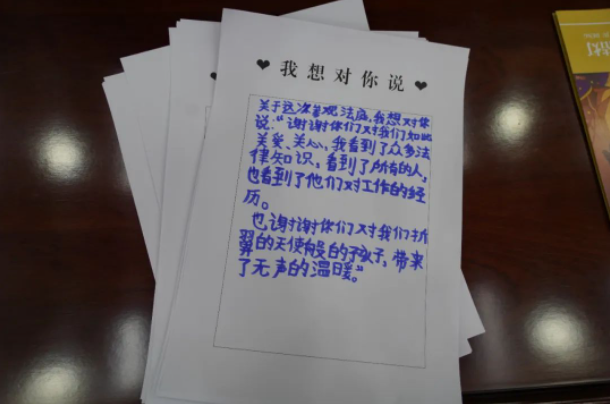 ❤ 我想对你说 ❤
关于这次参观法庭,我想对你
说:“谢谢你们对我们如此
关爱、关心,我看到了众多法
律知识,看到了所有的人,
也看到了他们对工作的经
历。
也谢谢你们对我们折
翼的天使般的孩子,带来
了无声的温暖”。